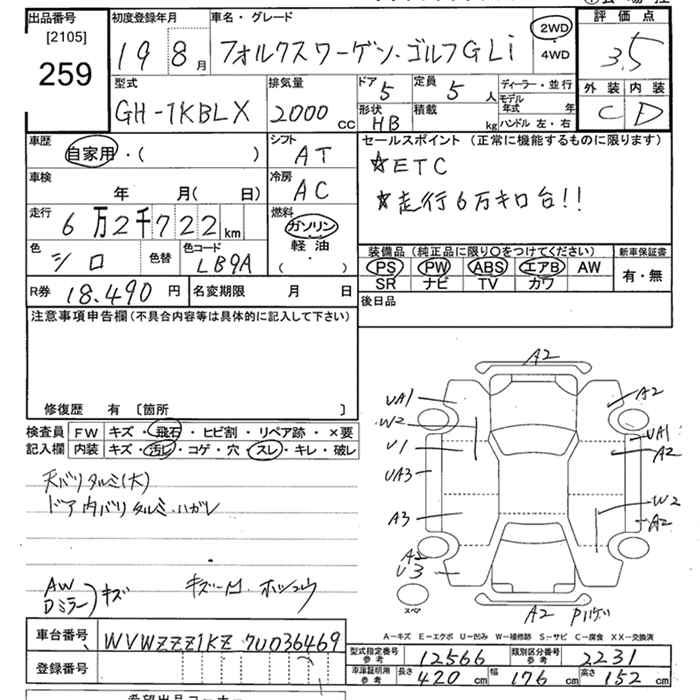 出品番号
[2105]
259
初度登録年月
19 8月
車名・グレード
フォルクスワーゲン・ゴルフGLi
2WD
・
4WD
評価点
3.5
型式
GH-1KBLX
排気量
2000 cc
ドア 5
定員 5 人
形状 HB
積載 kg
ディーラー・並行
モデル年式 年
ハンドル 左・右
外装 内装
C D
車歴
自家用・( )
シフト
AT
セールスポイント (正常に機能するものに限ります)
☆ETC
☆走行6万キロ台!!
車検
年 月( 日)
冷房
AC
走行
6万2千722km
燃料
ガソリン
軽油
( ・ )
色
シロ
色替
色コード
LB9A
装備品 (純正品に限り○をつけてください)
新車保証書
PS PW ABS エアB AW
SR ナビ TV カワ
有・無
R券 18.490 円
名変期限 月 日
後日品
注意事項申告欄(不具合内容等は具体的に記入して下さい)
修復歴 有 〔箇所 〕
検査員記入欄
FW キズ・飛石・ヒビ割・リペア跡・×要
内装 キズ・汚レ・コゲ・穴・スレ・キレ・破レ
天バリタルミ(大)
ドア内バリタルミ・ハガレ
AW
Dミラー
)キズ
A2
UA1
A2
W2
UA1
U1
A2
UA3
A3
W2
A2
A2
U3
スペア
A2
A-キズ E-エクボ U-凹み W-補修跡 S-サビ C-腐食 XX-交換済
車台番号
WVWZZZ1KZ7U036469
登録番号
型式指定番号 参考 12566
類別区分番号 参考 2231
車庫証明用 参考 長さ 420 cm 幅 176 cm 高さ 152 cm